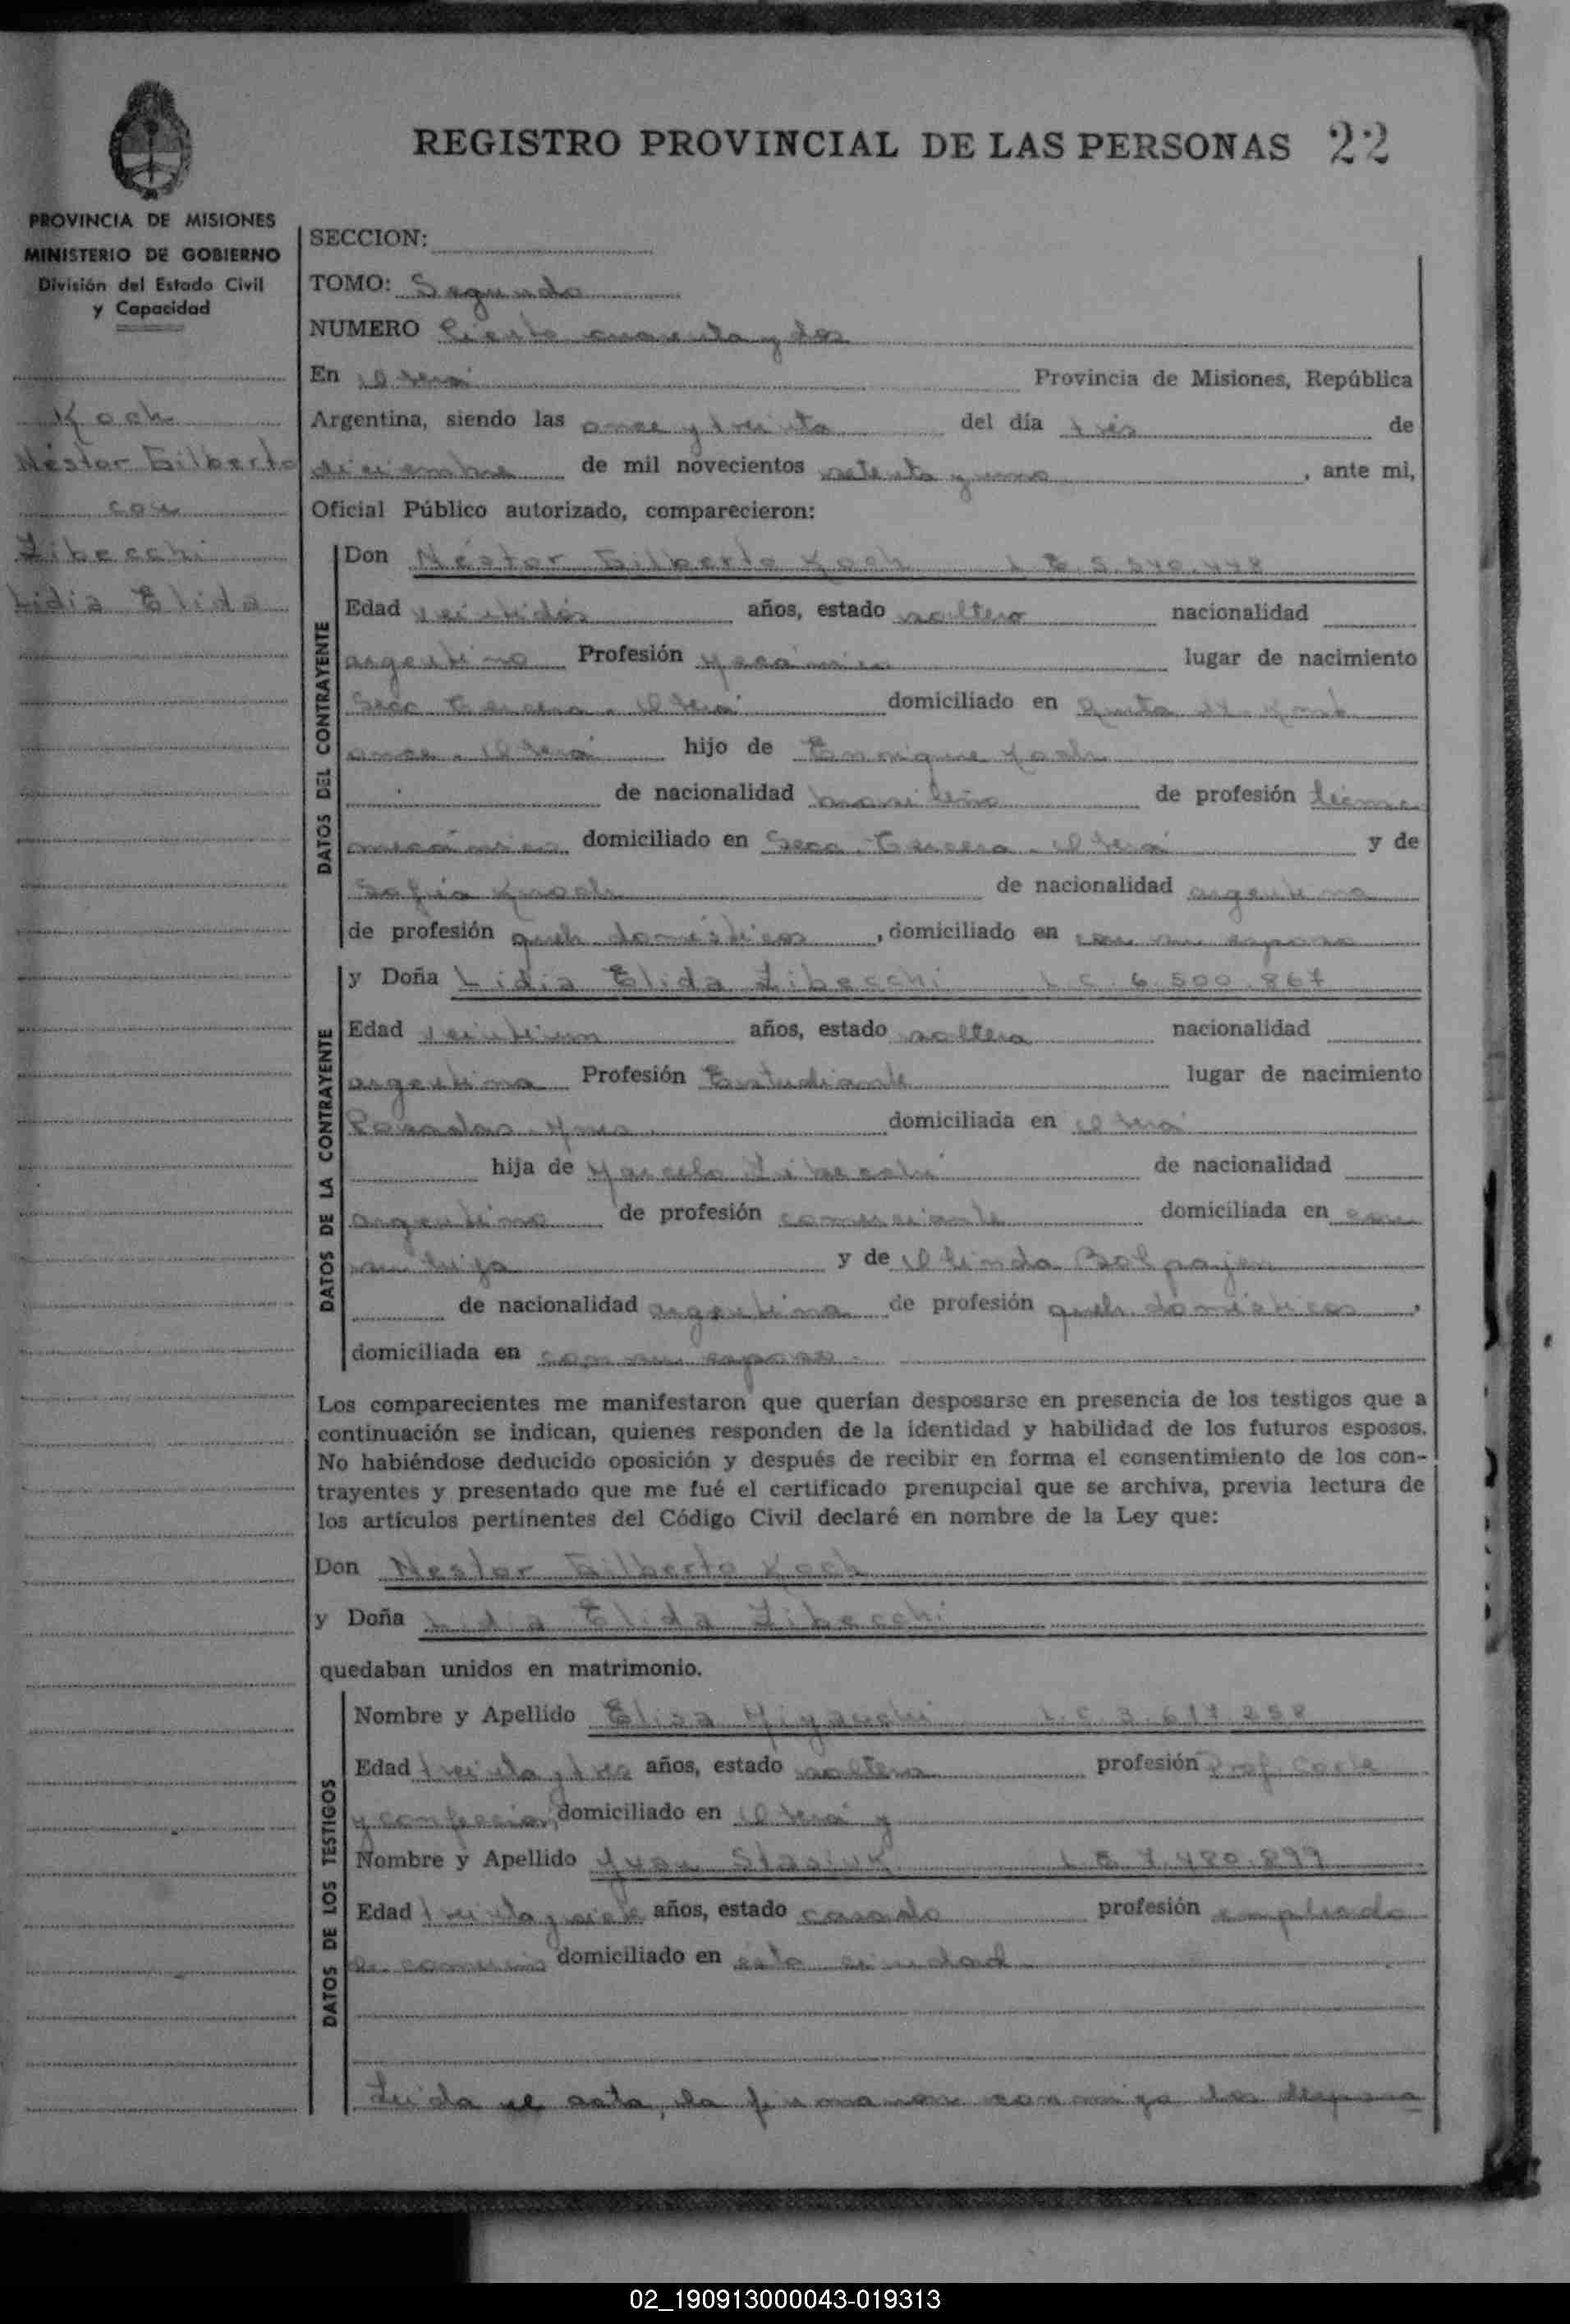 REGISTRO PROVINCIAL DE LAS PERSONAS 22
PROVINCIA DE MISIONES
MINISTERIO DE GOBIERNO
División del Estado Civil
y Capacidad
Koch
Néstor Gilberto
con
Zibecchi
Lidia Elida
SECCION:
TOMO: Segundo
NUMERO Ciento cuarenta y dos
En Oberá Provincia de Misiones, República
Argentina, siendo las once y treinta del día tres de
diciembre de mil novecientos setenta y uno, ante mi,
Oficial Público autorizado, comparecieron:
DATOS DEL CONTRAYENTE
Don Néstor Gilberto Koch L E 5.540.448
Edad veintidós años, estado soltero nacionalidad
argentino Profesión Mecánico lugar de nacimiento
Secc Tercera - Oberá domiciliado en
once - Oberá hijo de Enrique Koch
de nacionalidad brasileño de profesión
mecánico domiciliado en Secc. Tercera - Oberá y de
Sofía de nacionalidad argentina
de profesión queh. domésticos, domiciliado en con su esposo
DATOS DE LA CONTRAYENTE
y Doña Lidia Elida Zibecchi L.C. 6.500.867
Edad veintiun años, estado soltera nacionalidad
argentina Profesión Estudiante lugar de nacimiento
Posadas - Mnes domiciliada en Oberá
hija de Marcelo Zibecchi de nacionalidad
argentino de profesión comerciante domiciliada en con
su hija y de Olinda
de nacionalidad argentina de profesión queh. domésticos,
domiciliada en con su esposo.
Los comparecientes me manifestaron que querían desposarse en presencia de los testigos que a
continuación se indican, quienes responden de la identidad y habilidad de los futuros esposos.
No habiéndose deducido oposición y después de recibir en forma el consentimiento de los con-
trayentes y presentado que me fué el certificado prenupcial que se archiva, previa lectura de
los artículos pertinentes del Código Civil declaré en nombre de la Ley que:
Don Nestor Gilberto Koch
y Doña Lidia Elida Zibecchi
quedaban unidos en matrimonio.
DATOS DE LOS TESTIGOS
Nombre y Apellido Elisa Miyauchi L.C. 3.617.258
Edad treinta y tres años, estado soltera profesión Prof Corte
y confección, domiciliado en Oberá y
Nombre y Apellido Yvan Stasiuk L E 7.480.897
Edad treinta y siete años, estado casado profesión empleado
de comercio domiciliado en esta ciudad
Leída el acta, la firmaron conmigo los desposa
02_190913000043-019313